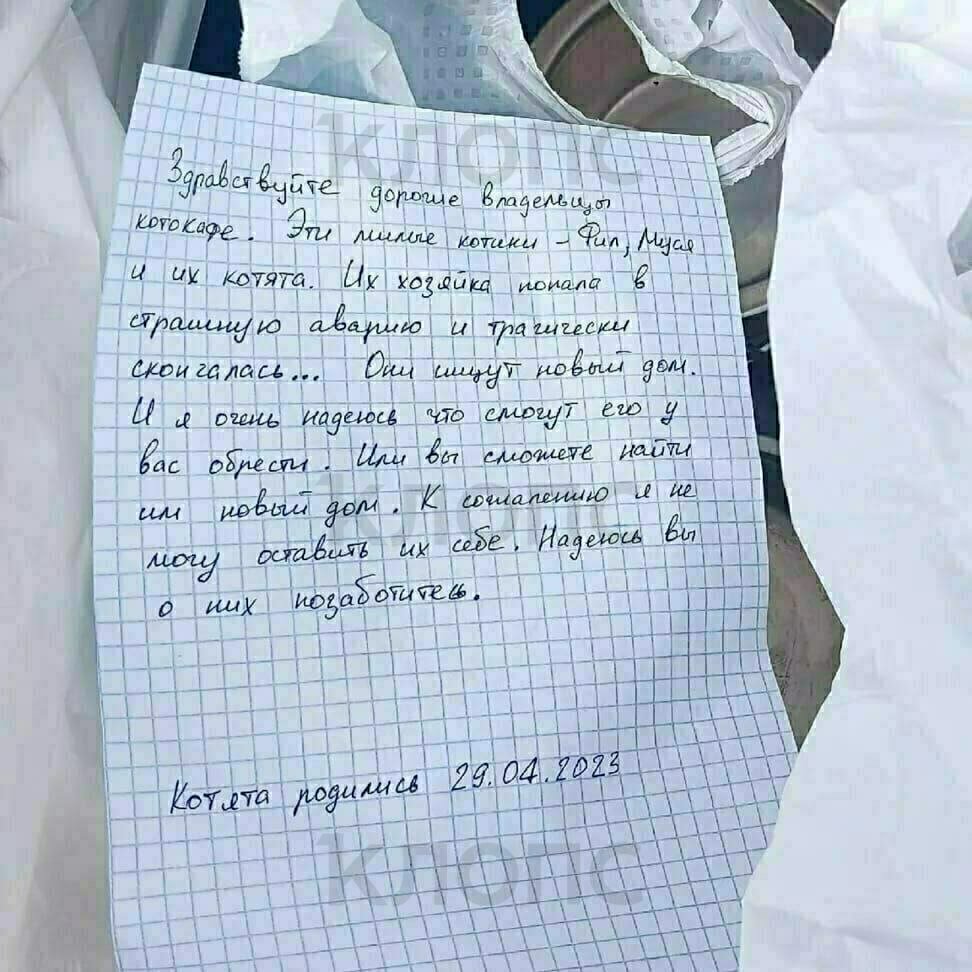 клопс
Здравствуйте дорогие владельцы
котокафе. Эти милые котики - Фил, Муся
и их котята. Их хозяйка попала в
страшную аварию и трагически
скончалась... Они ищут новый дом.
И я очень надеюсь что смогут его у
вас обрести. Или вы сможете найти
им новый дом. К сожалению я не
клопс
могу оставить их себе. Надеюсь вы
о них позаботитесь.
Котята родились 29.04.2023
клопс